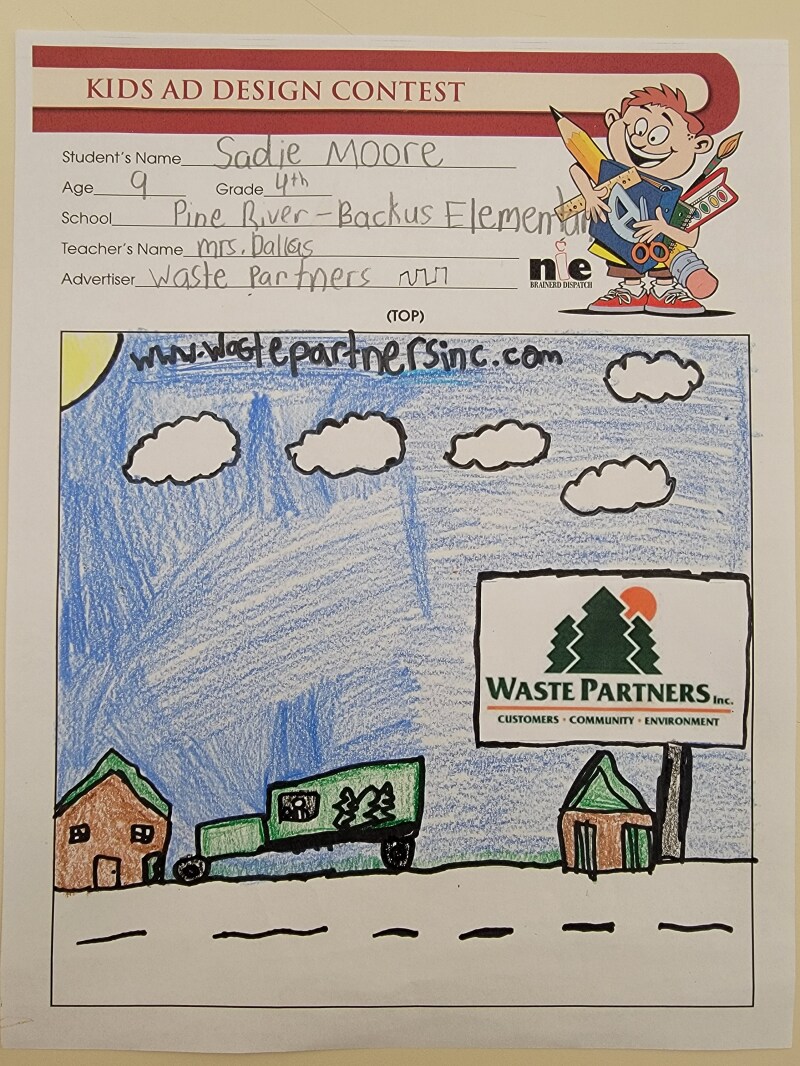 KIDS AD DESIGN CONTEST
Student's Name Sadie Moore
Age 9 Grade 4th
School Pine River-Backus Elementary
Teacher's Name Mrs. Dallas
Advertiser Waste Partners
nie
BRAINERD DISPATCH
(TOP)
www.wastepartnersinc.com
WASTE PARTNERS Inc.
CUSTOMERS · COMMUNITY · ENVIRONMENT